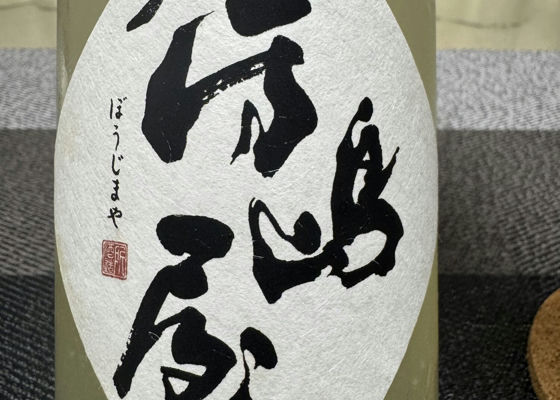 房
嶋
屋
ぼうじまや